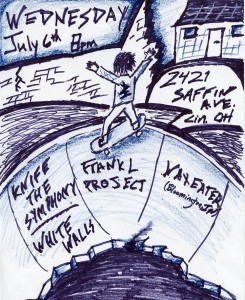 WEDNESDAY
July 6th 8pm
2421
SAFFIN
AVE.
Cin. OH
KNIFE
THE
SYMPHONY
WHITE
WALLS
FTANKL
PROJECT
WAXEATER
(Bloomington, IN)